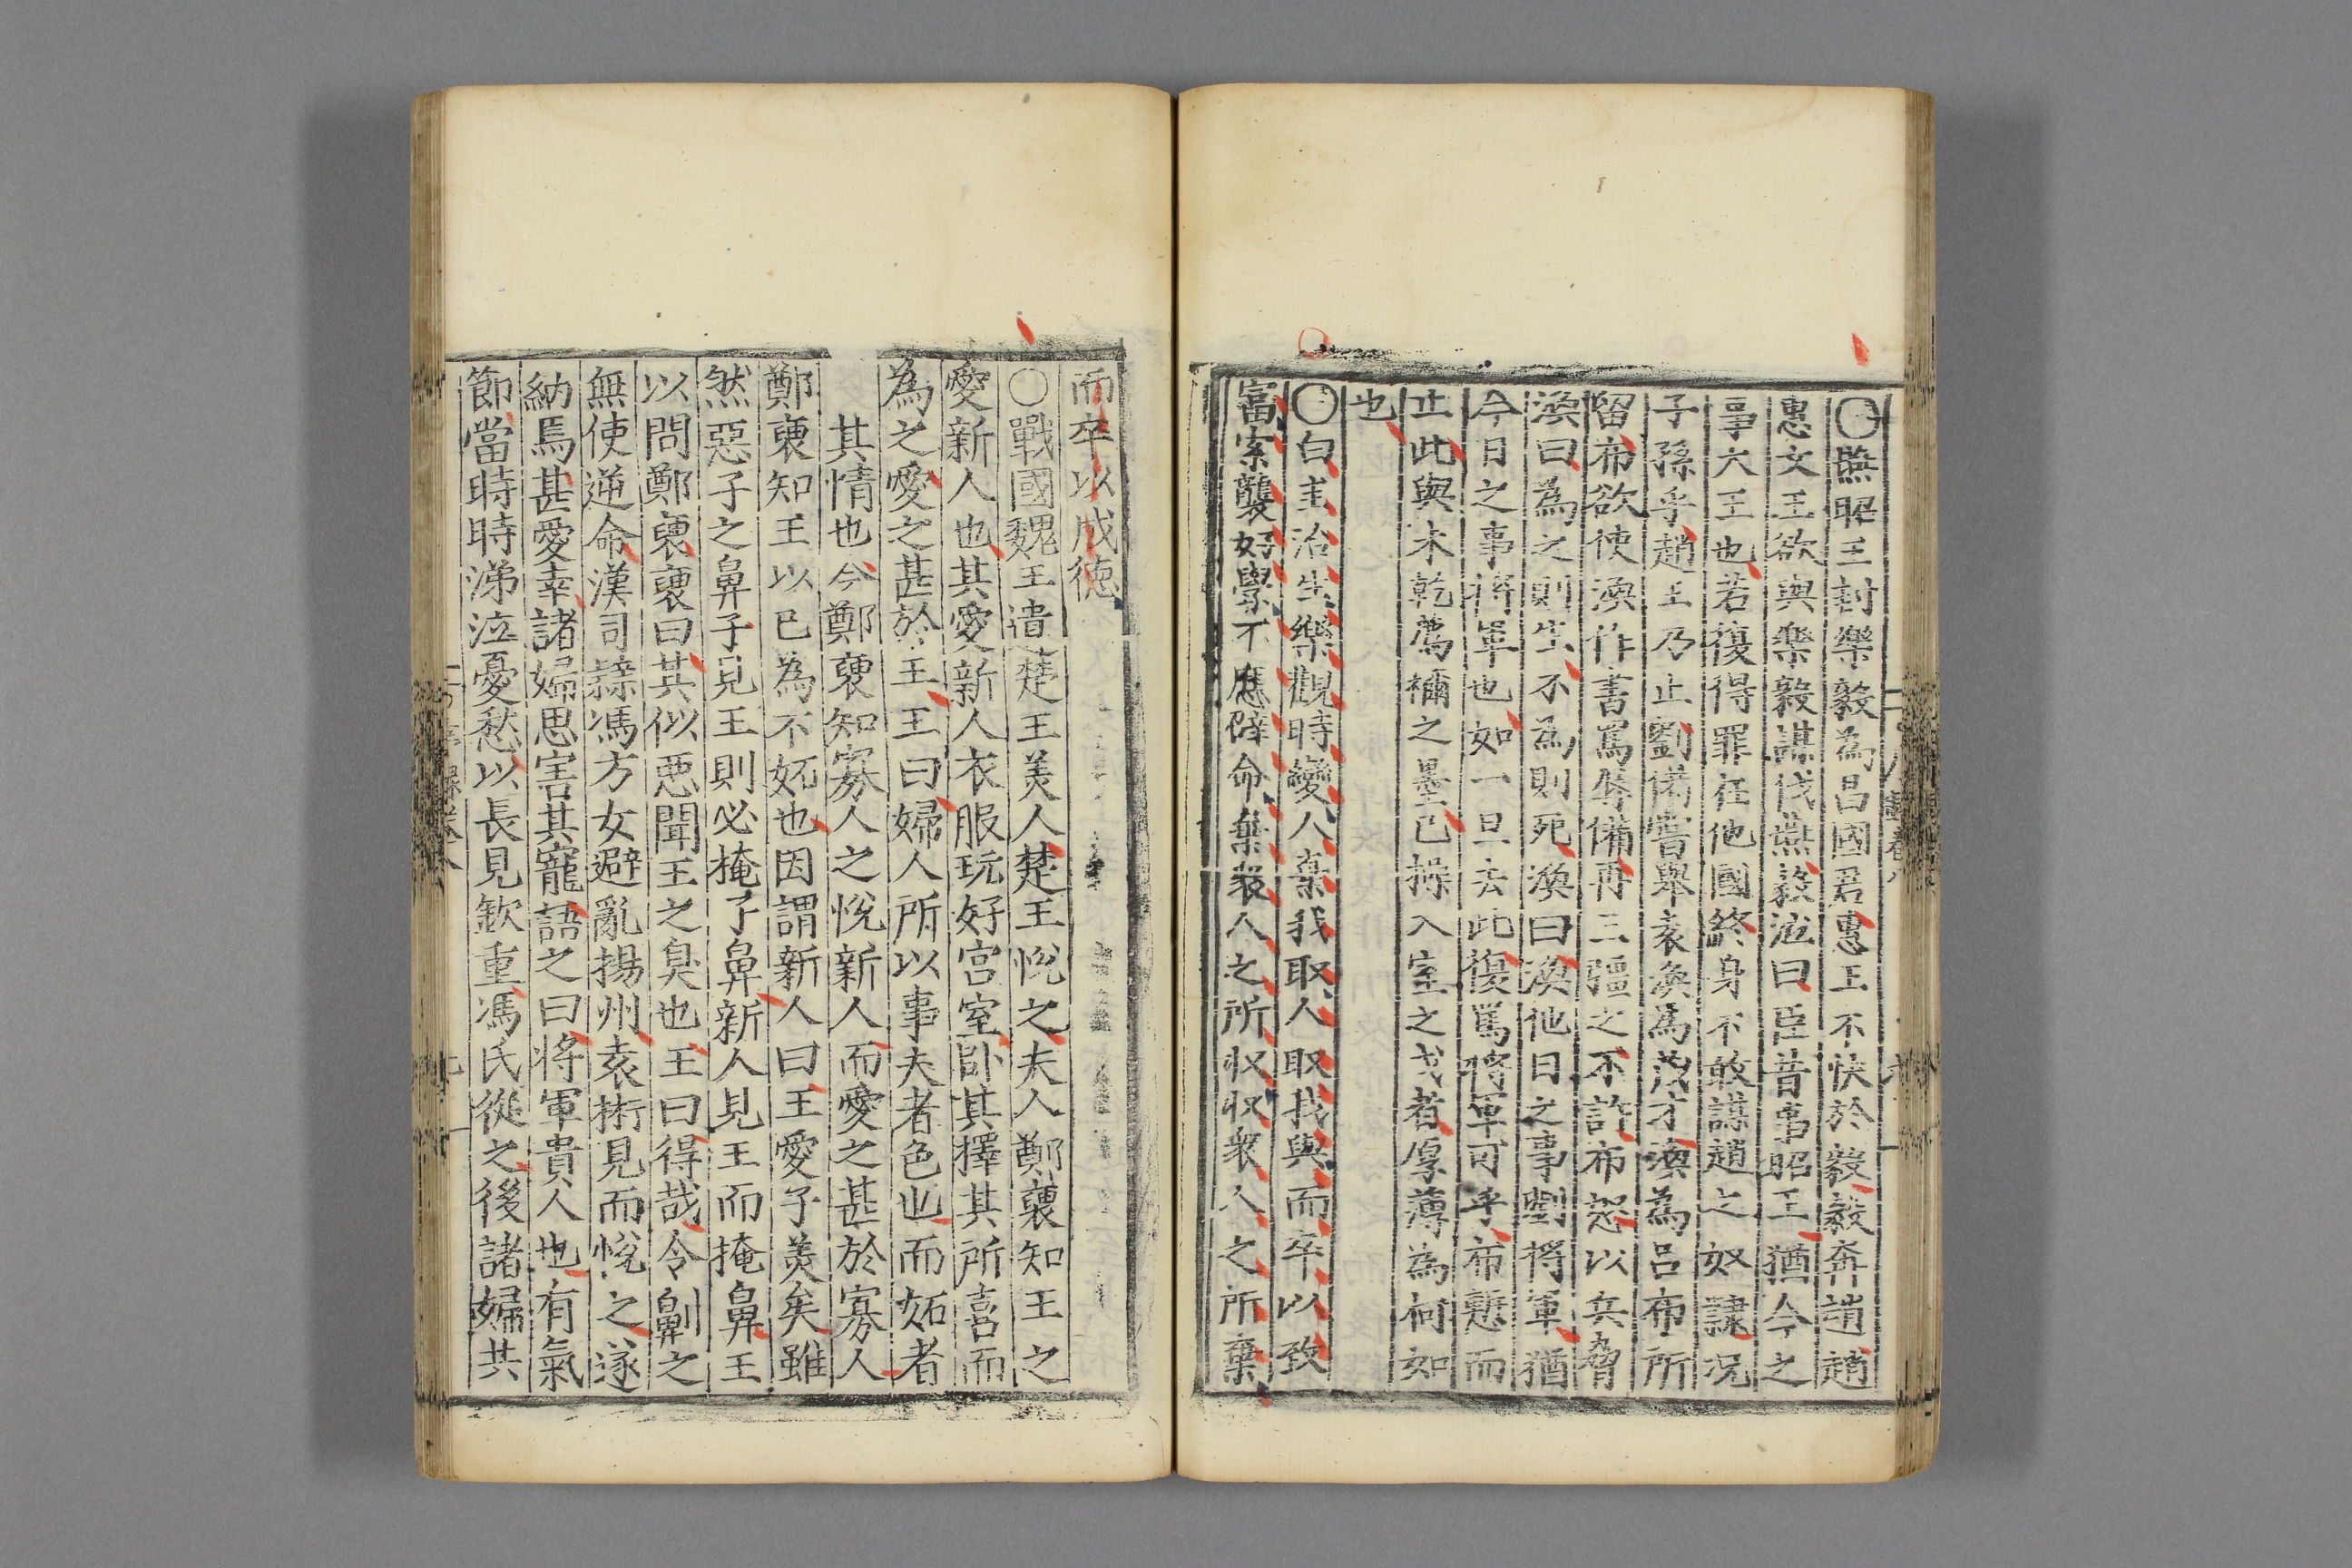 〇燕昭王封樂毅為昌國君惠王不快於毅毅奔趙趙
惠文王欲與樂毅謀伐燕毅泣曰臣昔事昭王猶今之
事大王也若復得罪在他國終身不敢謀趙之奴隷况
子孫乎趙王乃止劉備嘗舉袁渙為茂才渙為吕布所
留布欲使渙作書罵辱備再三彊之不許布怒以兵脅
渙曰為之則生不為則死渙曰渙他日之事劉將軍猶
今日之事將軍也如一旦去此復罵將軍可乎布慙而
止此與未乾薦禰之墨已操入室之戈者厚薄為何如
也
〇白圭治生樂觀時變人棄我取人取我與而卒以致
富索襲好學不應辟命棄衆人之所収収衆人之所棄
而卒以成徳
〇戰國魏王遺楚王美人楚王悅之夫人鄭褏知王之
愛新人也其愛新人衣服玩好宫室卧其擇其所喜而
為之愛之甚於王王曰婦人所以事夫者色也而妬者
其情也今鄭褏知寡人之悅新人而愛之甚於寡人
鄭褏知王以已為不妬也因謂新人曰王愛子美矣雖
然惡子之鼻子見王則必掩子鼻新人見王而掩鼻王
以問鄭褏褏曰其似惡聞王之臭也王曰得哉令劓之
無使逆命漢司𨽻馮方女避亂揚州袁術見而悅之遂
納焉甚愛幸諸婦思害其寵語之曰將軍貴人也有氣
節當時時涕泣憂愁以長見欽重馮氏從之後諸婦共